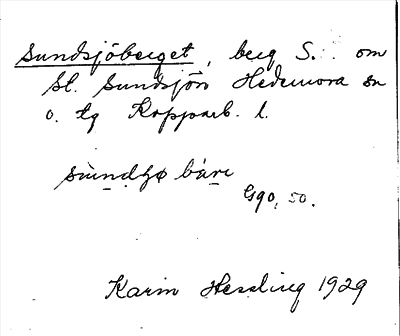 Sundsjöberget, berg S. om
St. Sundsjön Hedemora sn
o. tg Kopparb. l.
bàre
Ggo, 50.
Karin Hessling 1929